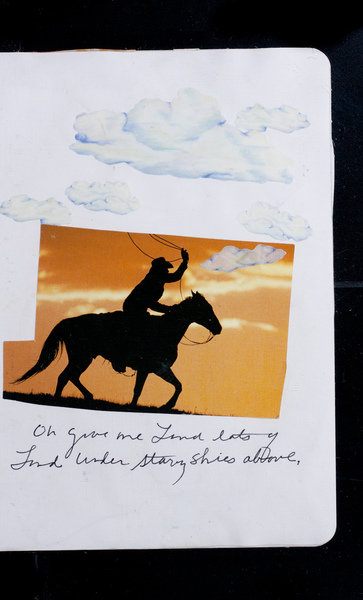 Oh give me Land lots of
Land Under starry Skies above,